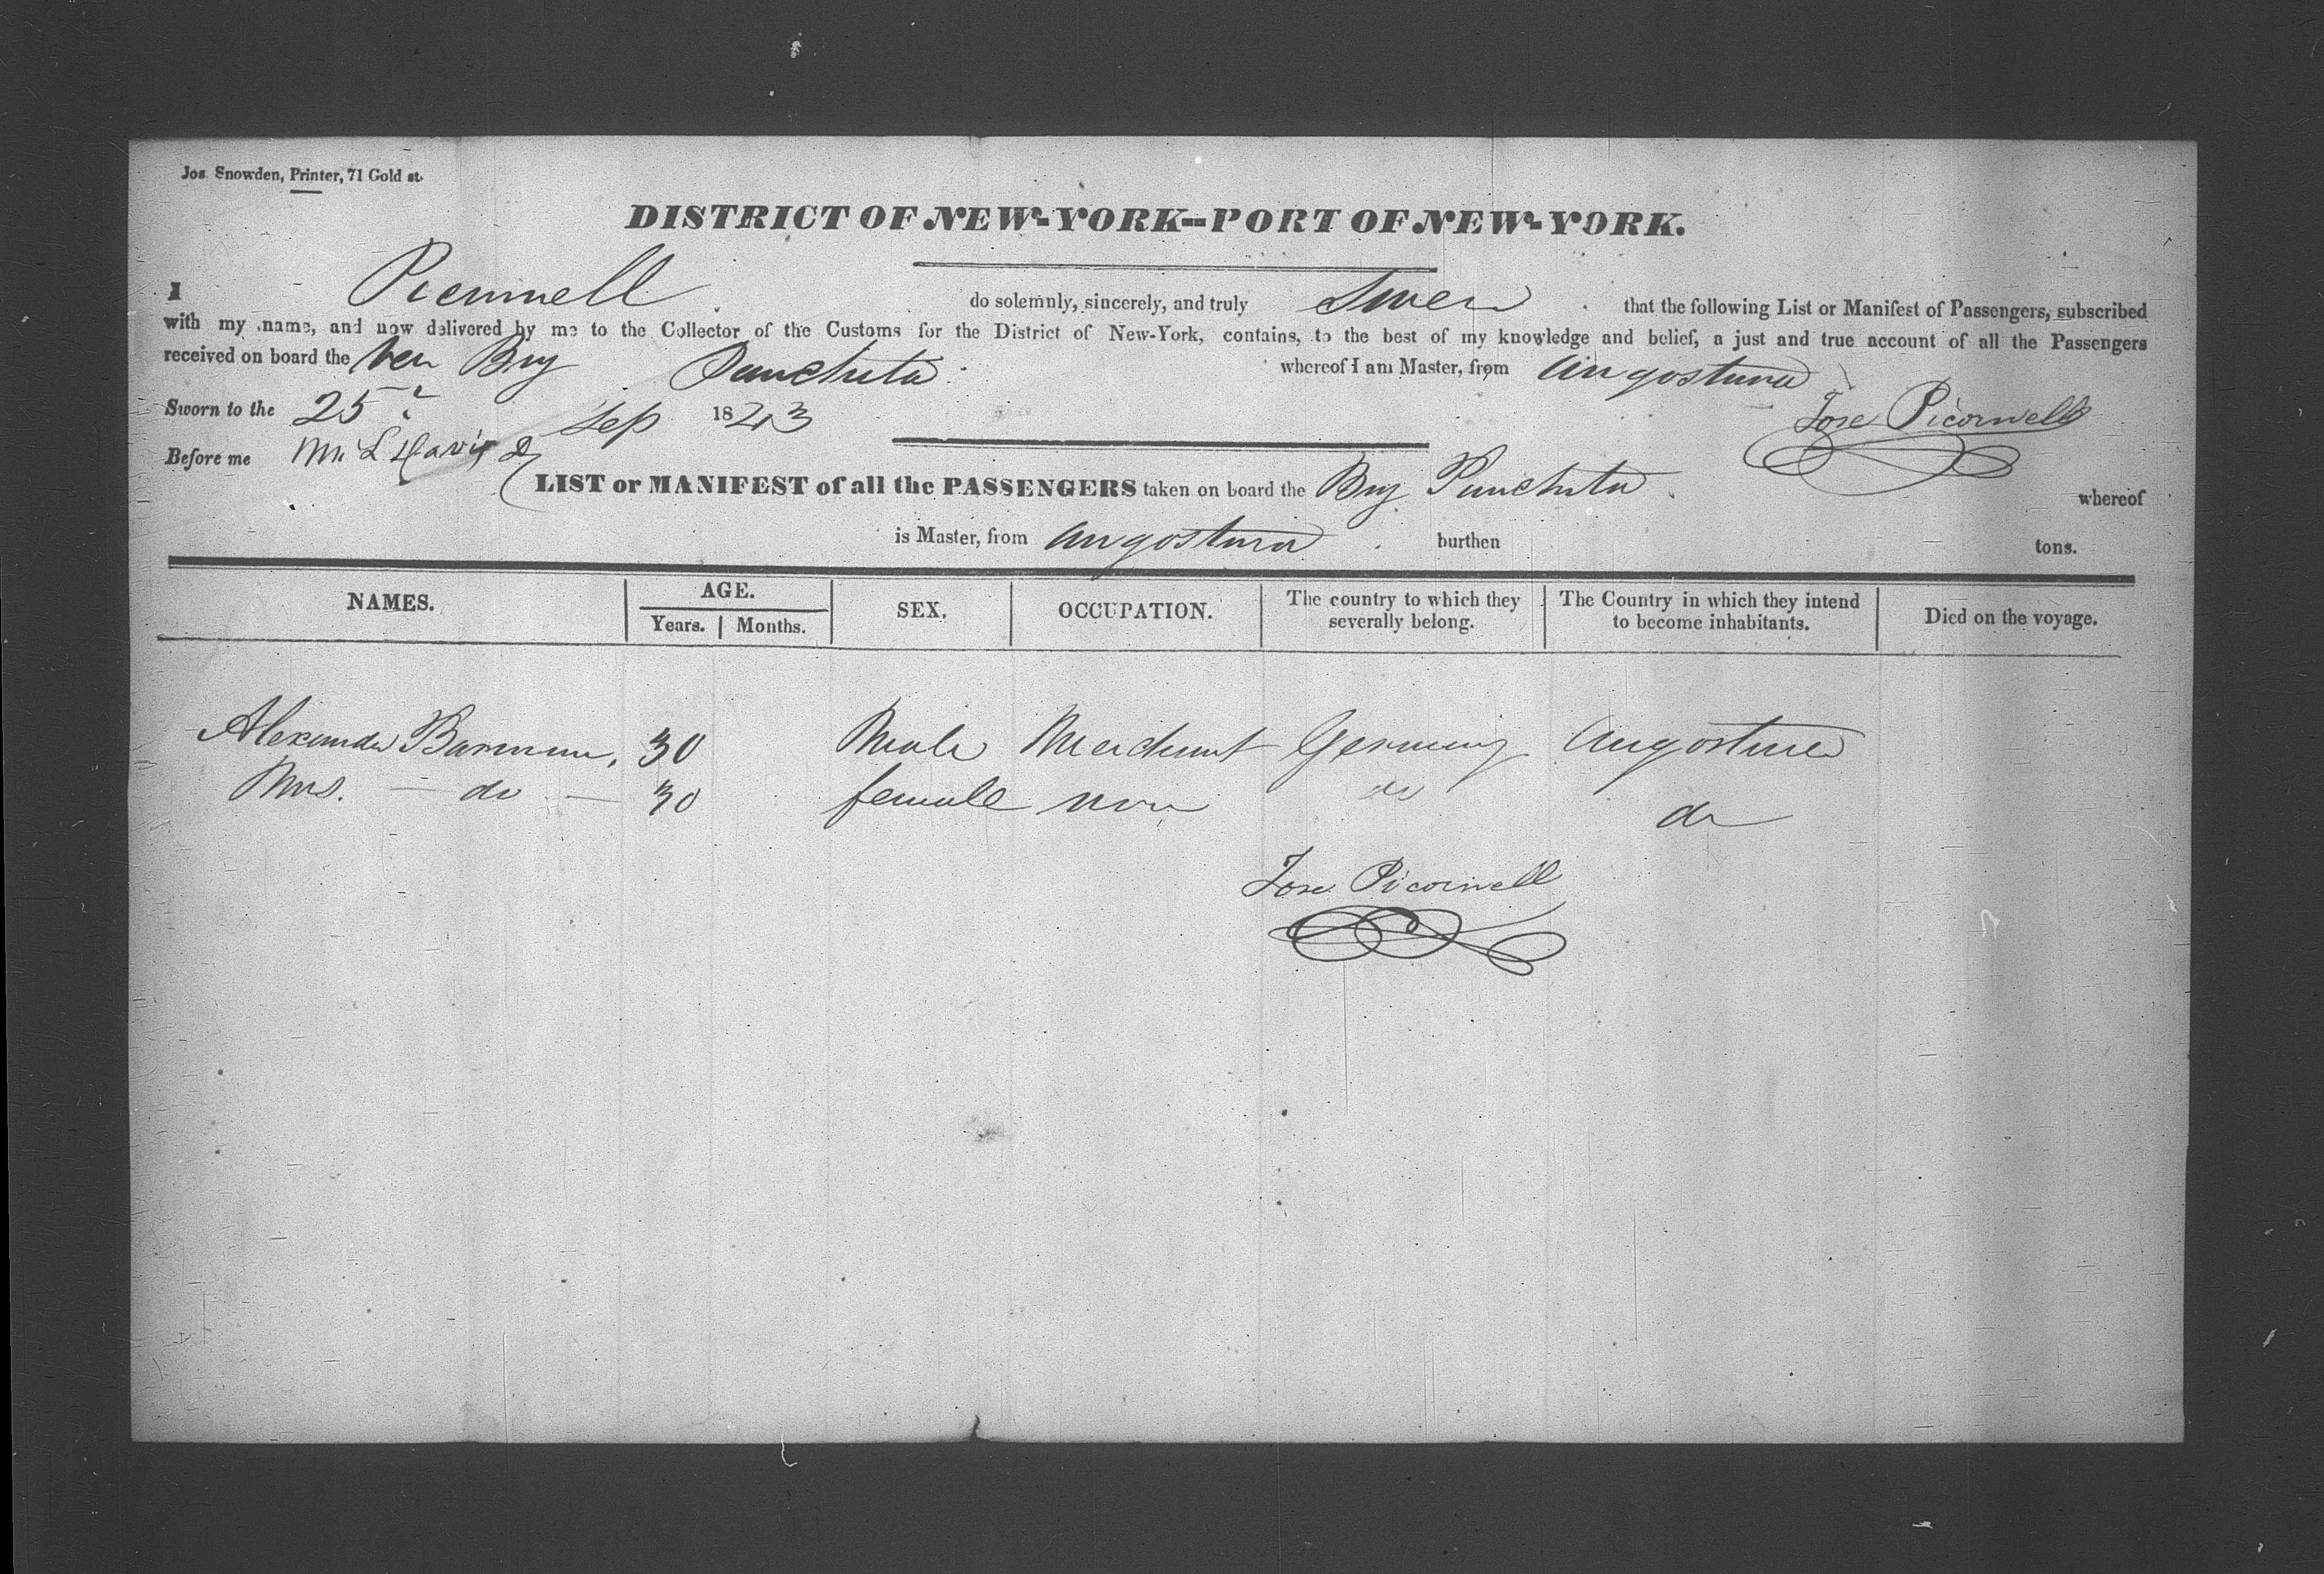 Jos. Snowden, Printer, 71 Gold st.
DISTRICT OF NEW-YORK--PORT OF NEW-YORK.
I Picornell do solemnly, sincerely, and truly Swear that the following List or Manifest of Passengers, subscribed
with my name, and now delivered by me to the Collector of the Customs for the District of New-York, contains, to the best of my knowledge and belief, a just and true account of all the Passengers
received on board the Ven Brig Panchita whereof I am Master, from Angostura
Sworn to the 25 Sep 1843 Jose Picornell
Before me M L Davis
LIST or MANIFEST of all the PASSENGERS taken on board the Brig Panchita whereof
is Master, from Angostura burthen tons.
NAMES. AGE. Years. Months. SEX. OCCUPATION. The country to which they severally belong. The Country in which they intend to become inhabitants. Died on the voyage.
Alexander 30 Male Merchant Germany Angostura
Mrs. — do — 30 female none do do
Jose Picornell